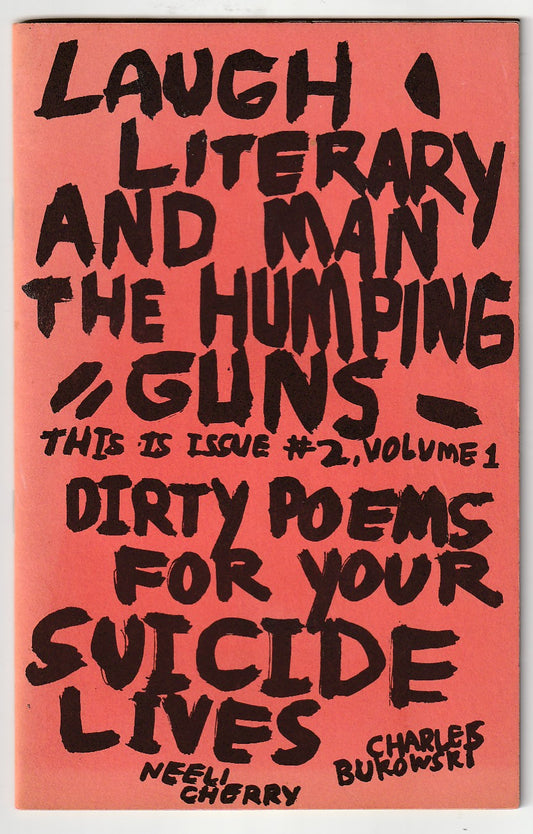 LAUGH
LITERARY
AND MAN
THE HUMPING
GUNS
THIS IS ISSUE #2, VOLUME 1
DIRTY POEMS
FOR YOUR
SUICIDE
LIVES
NEELI
CHERRY
CHARLES
BUKOWSKI